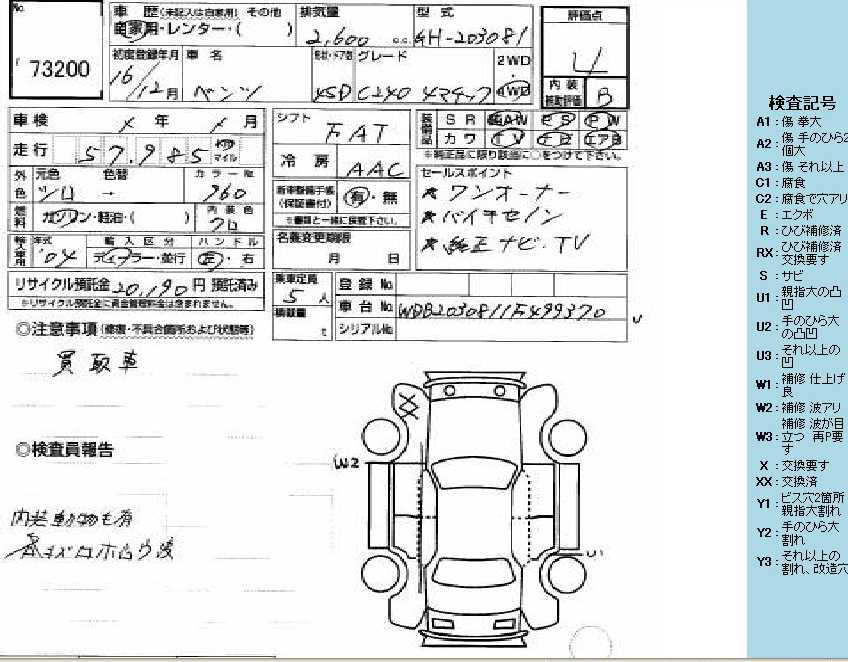 No.
73200
車歴(未記入は自家用) その他
自家用・レンター・( )
排気量
2,600 c.c.
型式
GH-203081
評価点
4
内装
補助評価
B
初度登録年月
16/12月
車名
ベンツ
形状・ドア数
4SD
グレード
C240 4マチック
2WD
・
4WD
車検 年 月
走行 57,985 km マイル
外色 元色 色替 カラーNo.
シロ → 960
燃料 ガソリン・軽油・( )
内装色
クロ
輸入車用 年式 輸入区分 ハンドル
'04 ディーラー・並行 左・右
リサイクル預託金 20,190円 預託済み
※リサイクル預託金に資金管理料金は含まれません。
シフト
FAT
冷房
AAC
新車整備手帳
(保証書付)
有・無
※書類と一緒に保管下さい。
名義変更期限
月 日
乗車定員
5人
積載量
t
装備品 SR AW PS PW
カワ TV ナビ エアB
※純正品に限り該当に○をつけて下さい。
セールスポイント
★ワンオーナー
★バイキセノン
★純正ナビ・TV
登録No.
車台No. WDB2030811F499370
シリアルNo.
◎注意事項(修復・不具合箇所および状態等)
買取車
◎検査員報告
内装動物毛有
XX
W2
U1
検査記号
A1:傷 拳大
A2:傷 手のひら2個大
A3:傷 それ以上
C1:腐食
C2:腐食で穴アリ
E:エクボ
R:ひび補修済
RX:ひび補修済 交換要す
S:サビ
U1:親指大の凸凹
U2:手のひら大の凸凹
U3:それ以上の凹
W1:補修 仕上げ良
W2:補修 波アリ
W3:補修 波が目立つ 再P要す
X:交換要す
XX:交換済
Y1:ビス穴2箇所 親指大割れ
Y2:手のひら大割れ
Y3:それ以上の割れ、改造穴